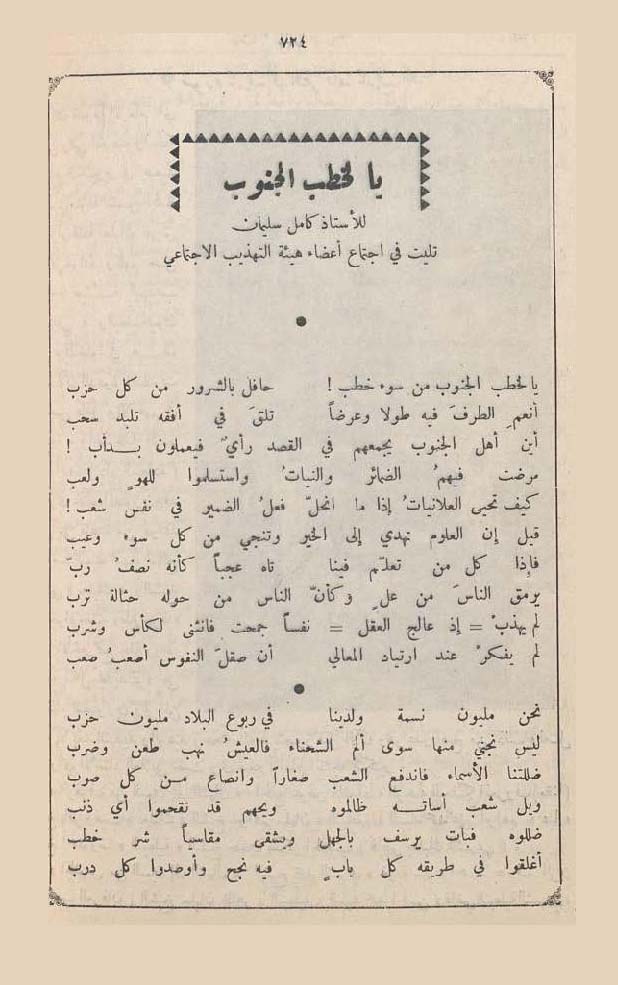 ٧٢٤
يا لخطب الجنوب
للأستاذ كامل سليمان
تليت في اجتماع أعضاء هيئة التهذيب الاجتماعي
يا لخطب الجنوب من سوء خطب ! حافل بالشرور من كل حزب
أنعمِ الطرفَ فيه طولا وعرضاً تلقَ في أفقه تلبد سحب
أين أهل الجنوب يجمعهم في القصد رأيٌ فيعملون بدأب !
مرضت فيهمُ الضمائر والنياتُ واستسلموا للهوٍ ولعب
كيف تحيى العلانياتُ إذا ما انحلّ فعلُ الضمير في نفس شعب !
قيل إن العلوم تهدي إلى الخير وتنجي من كل سوء وعيب
فإذا كل من تعلّم فينا تاه عجباً كأنه نصفُ ربّ
يرمق الناسَ من علٍ وكأنّ الناس من حوله حثالة ترب
لم يهذبْ = إذ عالج العقل = نفساً جمحت فانثنى لكأس وشرب
لم يفكرْ عند ارتياد المعالي أن صقلَ النفوس أصعبُ صعب
نحن مليون نسمة ولدينا في ربوع البلاد مليون حزب
ليس نجني منها سوى ألم الشحناء فالعيشُ نهب طعن وضرب
ضللتنا الأسماء فاندفع الشعب صغاراً وانصاع من كل صوب
ويل شعب أساته ظالموه ويحهم قد تقحموا أي ذنب
ضللوه فبات يرسف بالجهل ويشقى مقاسياً شر خطب
أغلقوا في طريقه كل بابٍ فيه نجح وأوصدوا كل درب